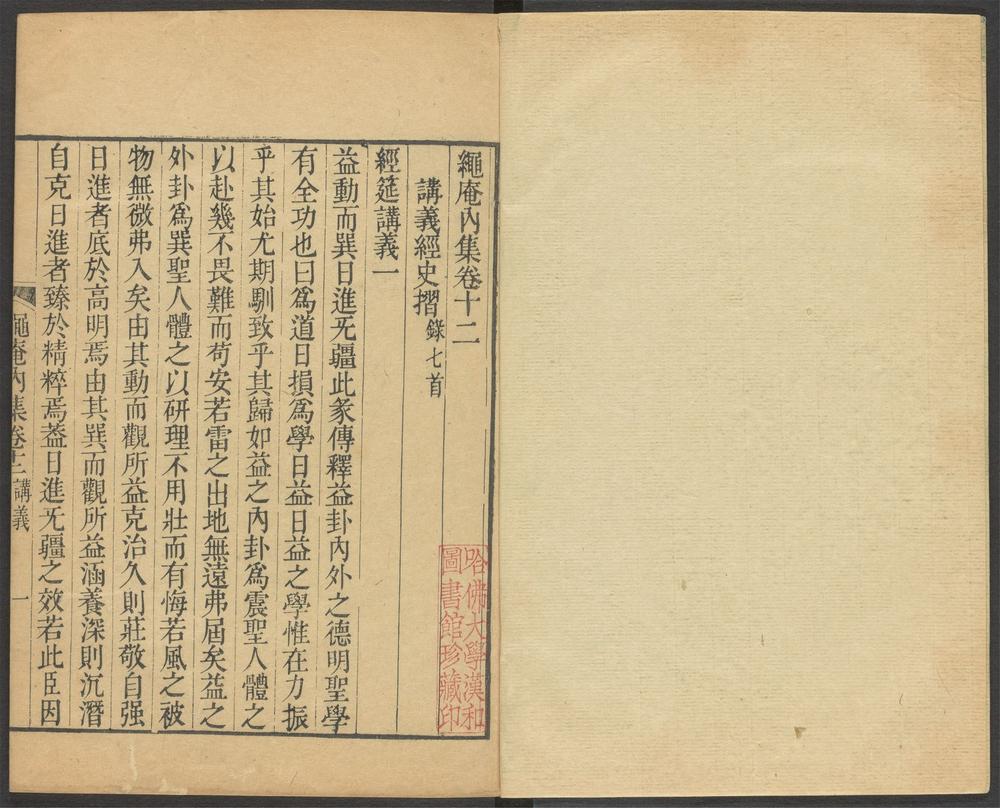 繩庵內集卷十二
講義經史摺錄七首
經筵講義一
益動而巽日進无疆此彖傳釋益卦內外之德明聖學
有全功也曰爲道日損爲學日益日益之學惟在力振
乎其始尤期馴致乎其歸如益之內卦爲震聖人體之
以赴幾不畏難而苟安若雷之出地無遠弗屆矣益之
外卦爲巽聖人體之以研理不用壯而有悔若風之被
物無微弗入矣由其動而觀所益克治久則莊敬自强
日進者底於高明焉由其巽而觀所益涵養深則沉潛
自克日進者臻於精粹焉葢日進无疆之效若此臣因
繩庵內集卷十二 講義 一
哈佛大學漢和
圖書館珍藏印